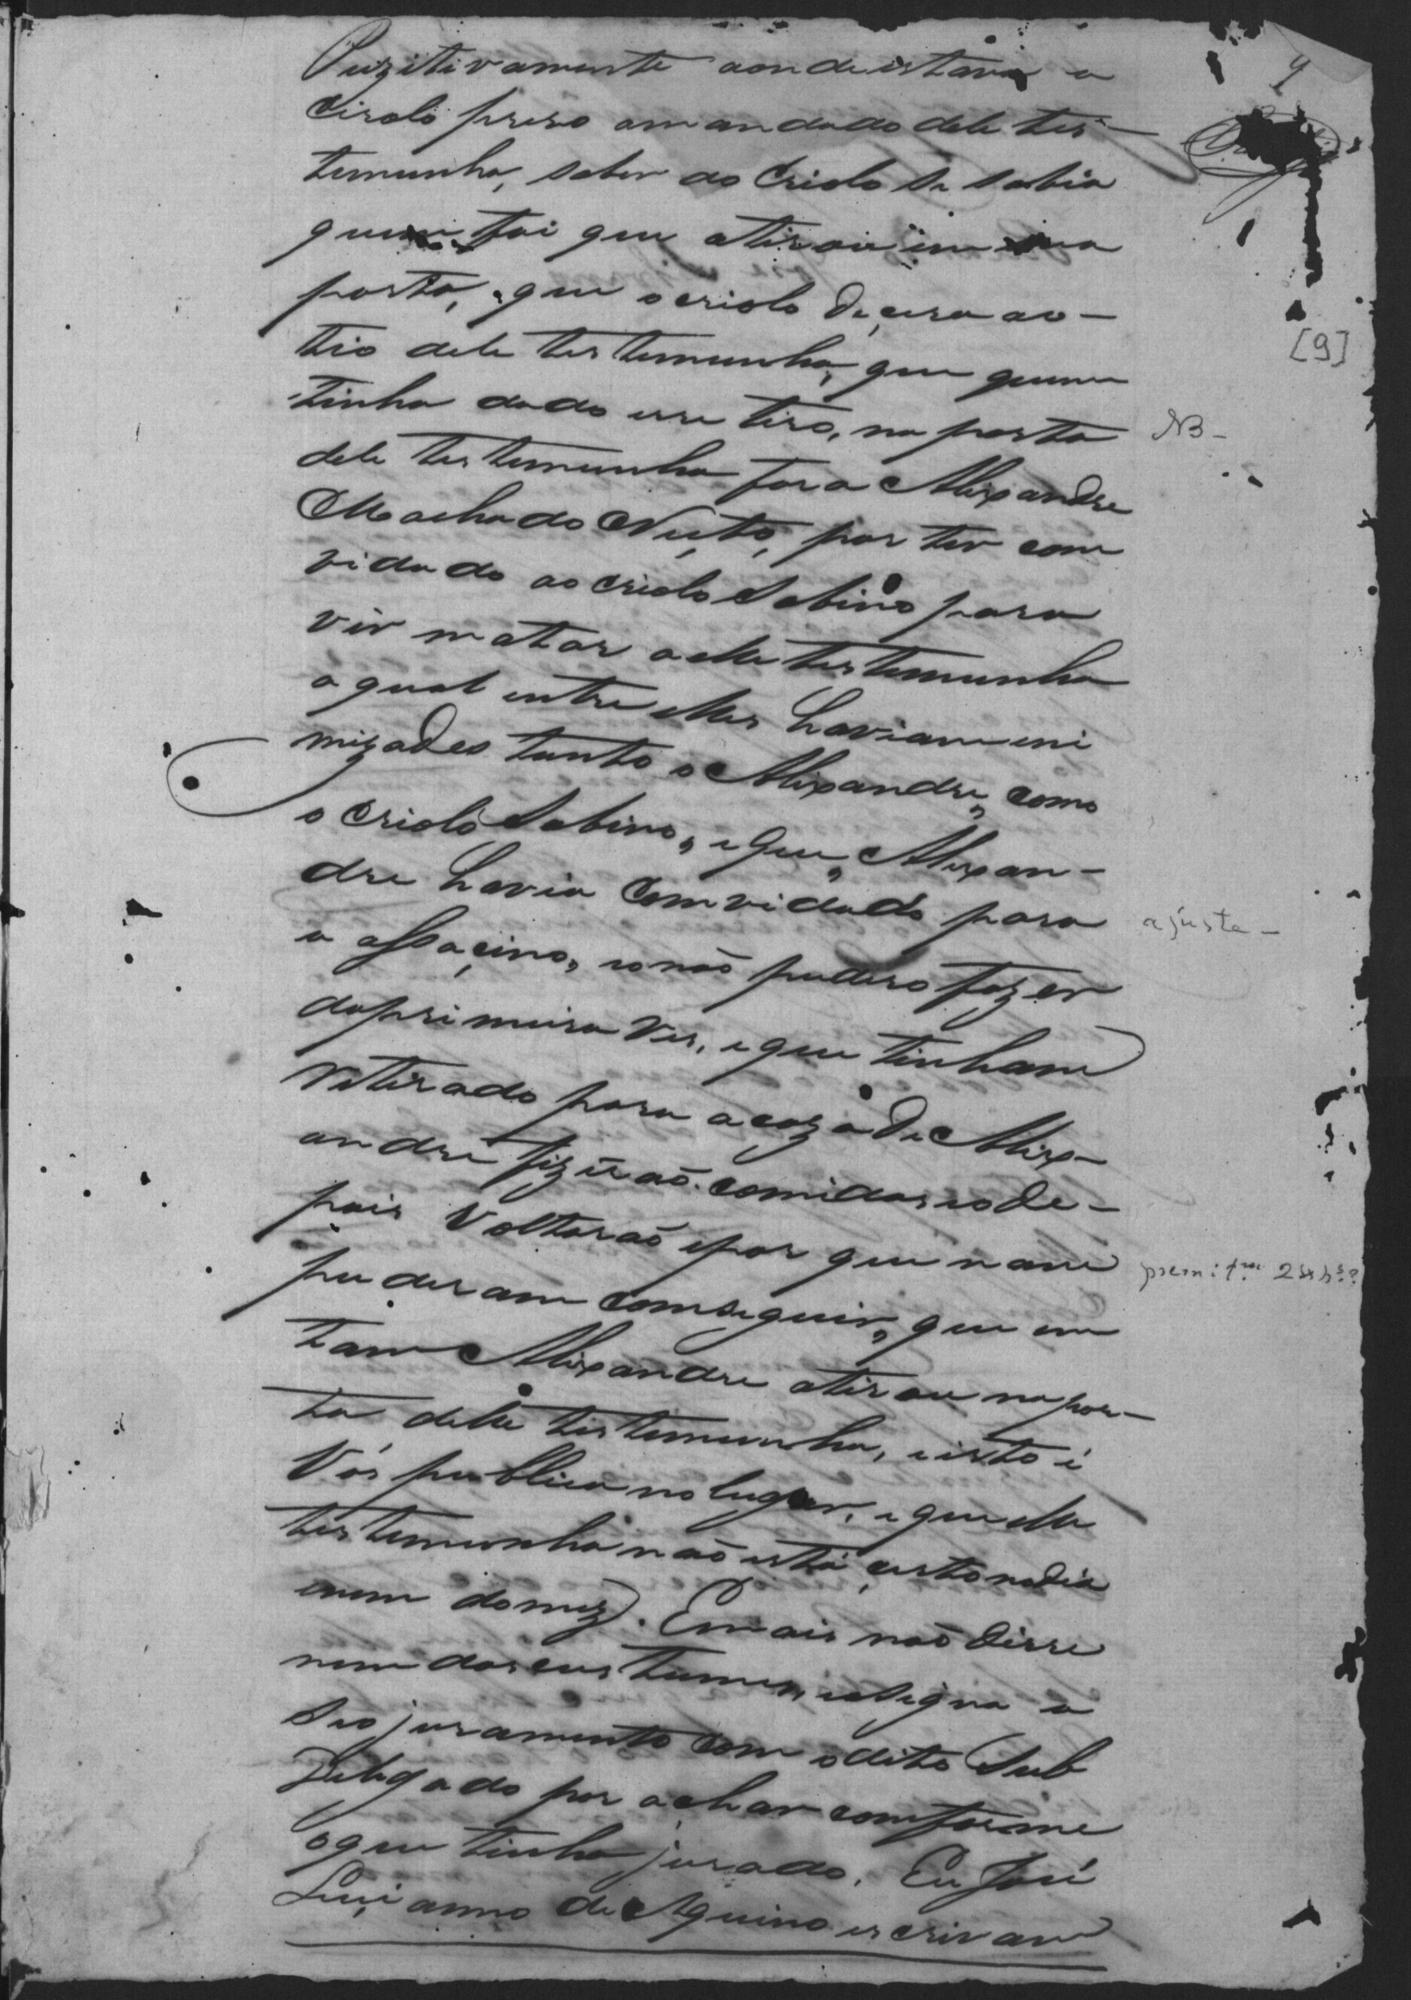 9
Puzitivamente aondeistava o
Criolo prezo amandado dele tes-
temunha, saber do Criolo se sabia
quem foi que atirou em sua
porta, que o criolo deçera ao-
tio dele testemunha, que quem
tinha dado esse tiro, na porta
dele testemunha fora Alexandre
Machado Neto, por ter con
vidado ao criolo Sabino para
vir matar a elle testemunha
o qual entre elles haviam ini
mizades tanto o Alexandre, como
o Criolo Sabino, e que, Alexan-
dre havia Comvidado para
o assaçino, e o não pudero fazer
da primeira Ves, e que tinham
retirado para a caza de Alex-
andre fizerão comidas e o de-
pois Voltarão e por que nam
puderam conseguir, que em
tam Alexandre atirou na por-
ta delle testemunha, e isto é
Vós publica no lugar, e que elle
testemunha não está çerto no dia
nem do mez. E mais não disse
nem dos custumes, e asigna o
seo juramento com o dito Sub
Delegado por achar comforme
o que tinha jurado. Eu José
Luçianno de Aquino escrivam
[9]
NB-
ajuste-